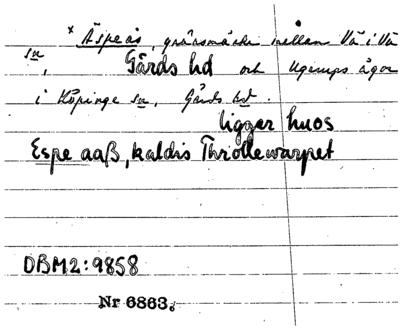 x Äspeås, gränsmärke mellan Vä i Vä
sn, Gärds hd och Ugerups ägor
i Köpinge sn, Gärds hd.
ligger huos
Espe aaß, kaldis Throllewarpet
DBM2:9858
Nr 6863.